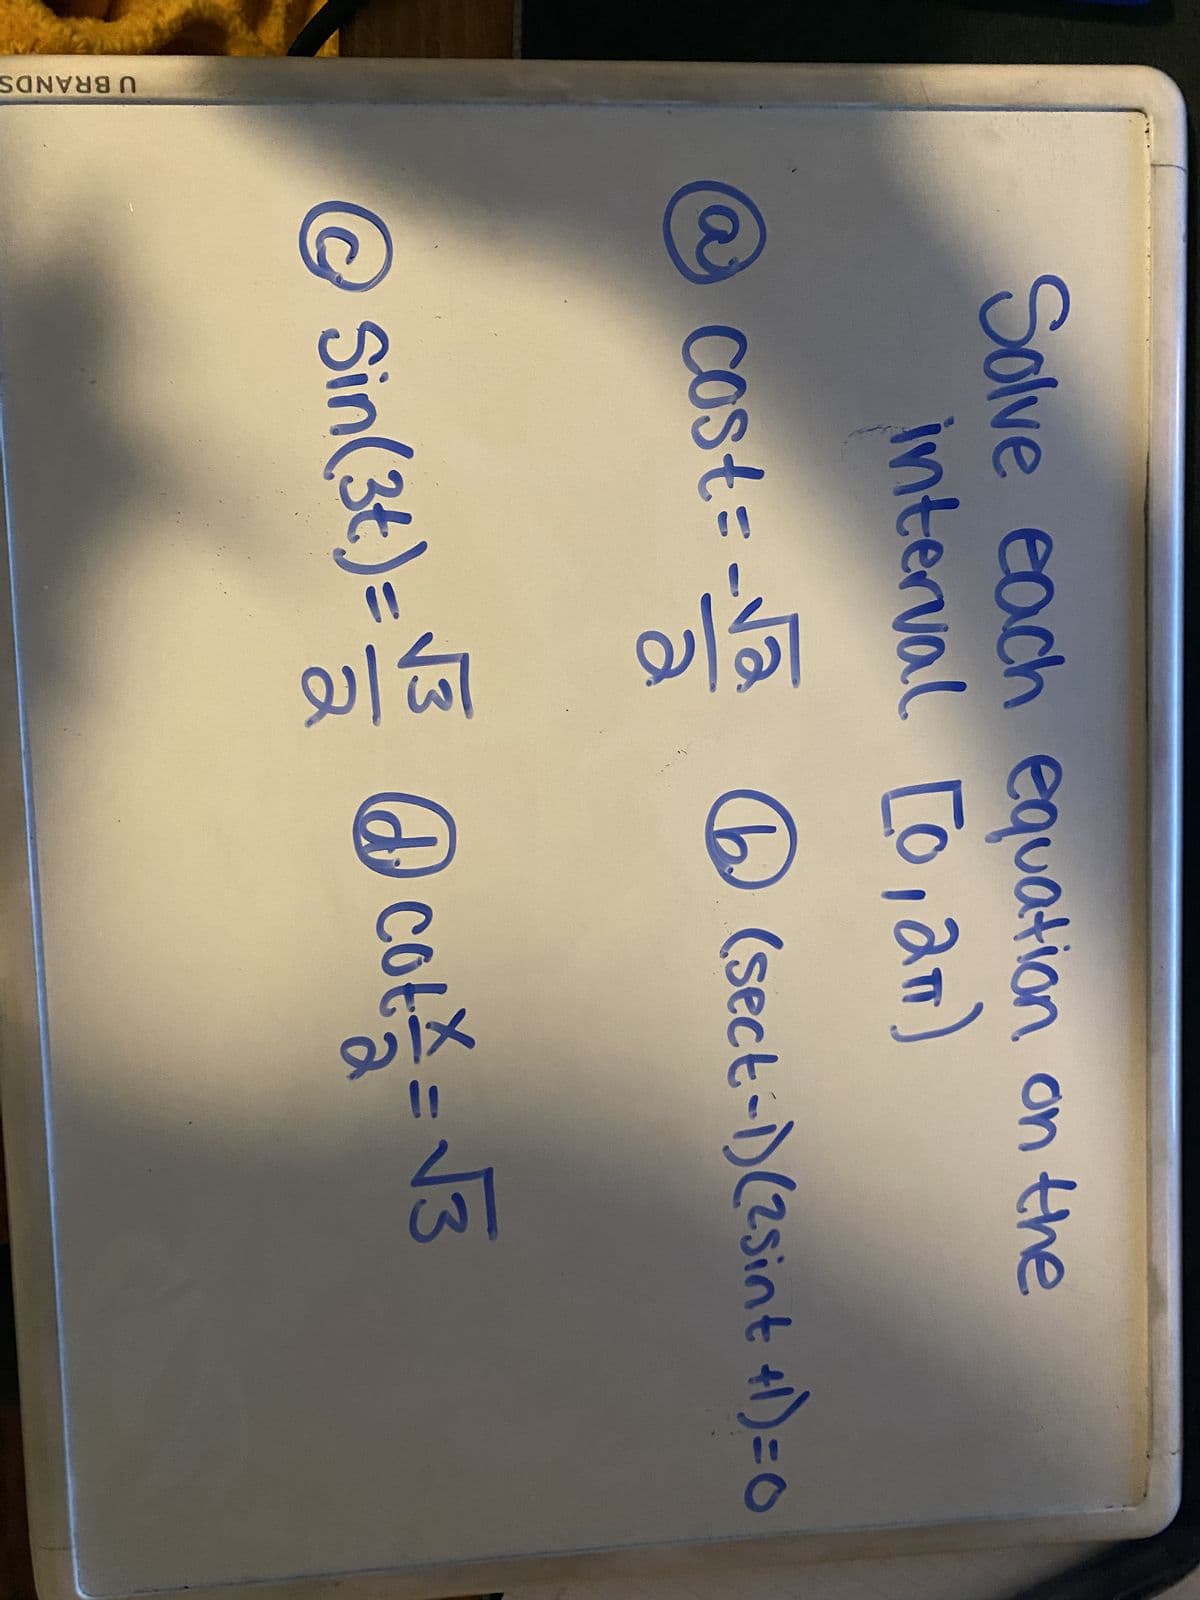 Solve each equation on the
interval [0, 2π)
ⓐ cos t = -√2/2 ⓑ (sect-1)(2sint+1)=0
ⓒ Sin(3t)=√3/2 ⓓ cot x/2 = √3
U BRANDS